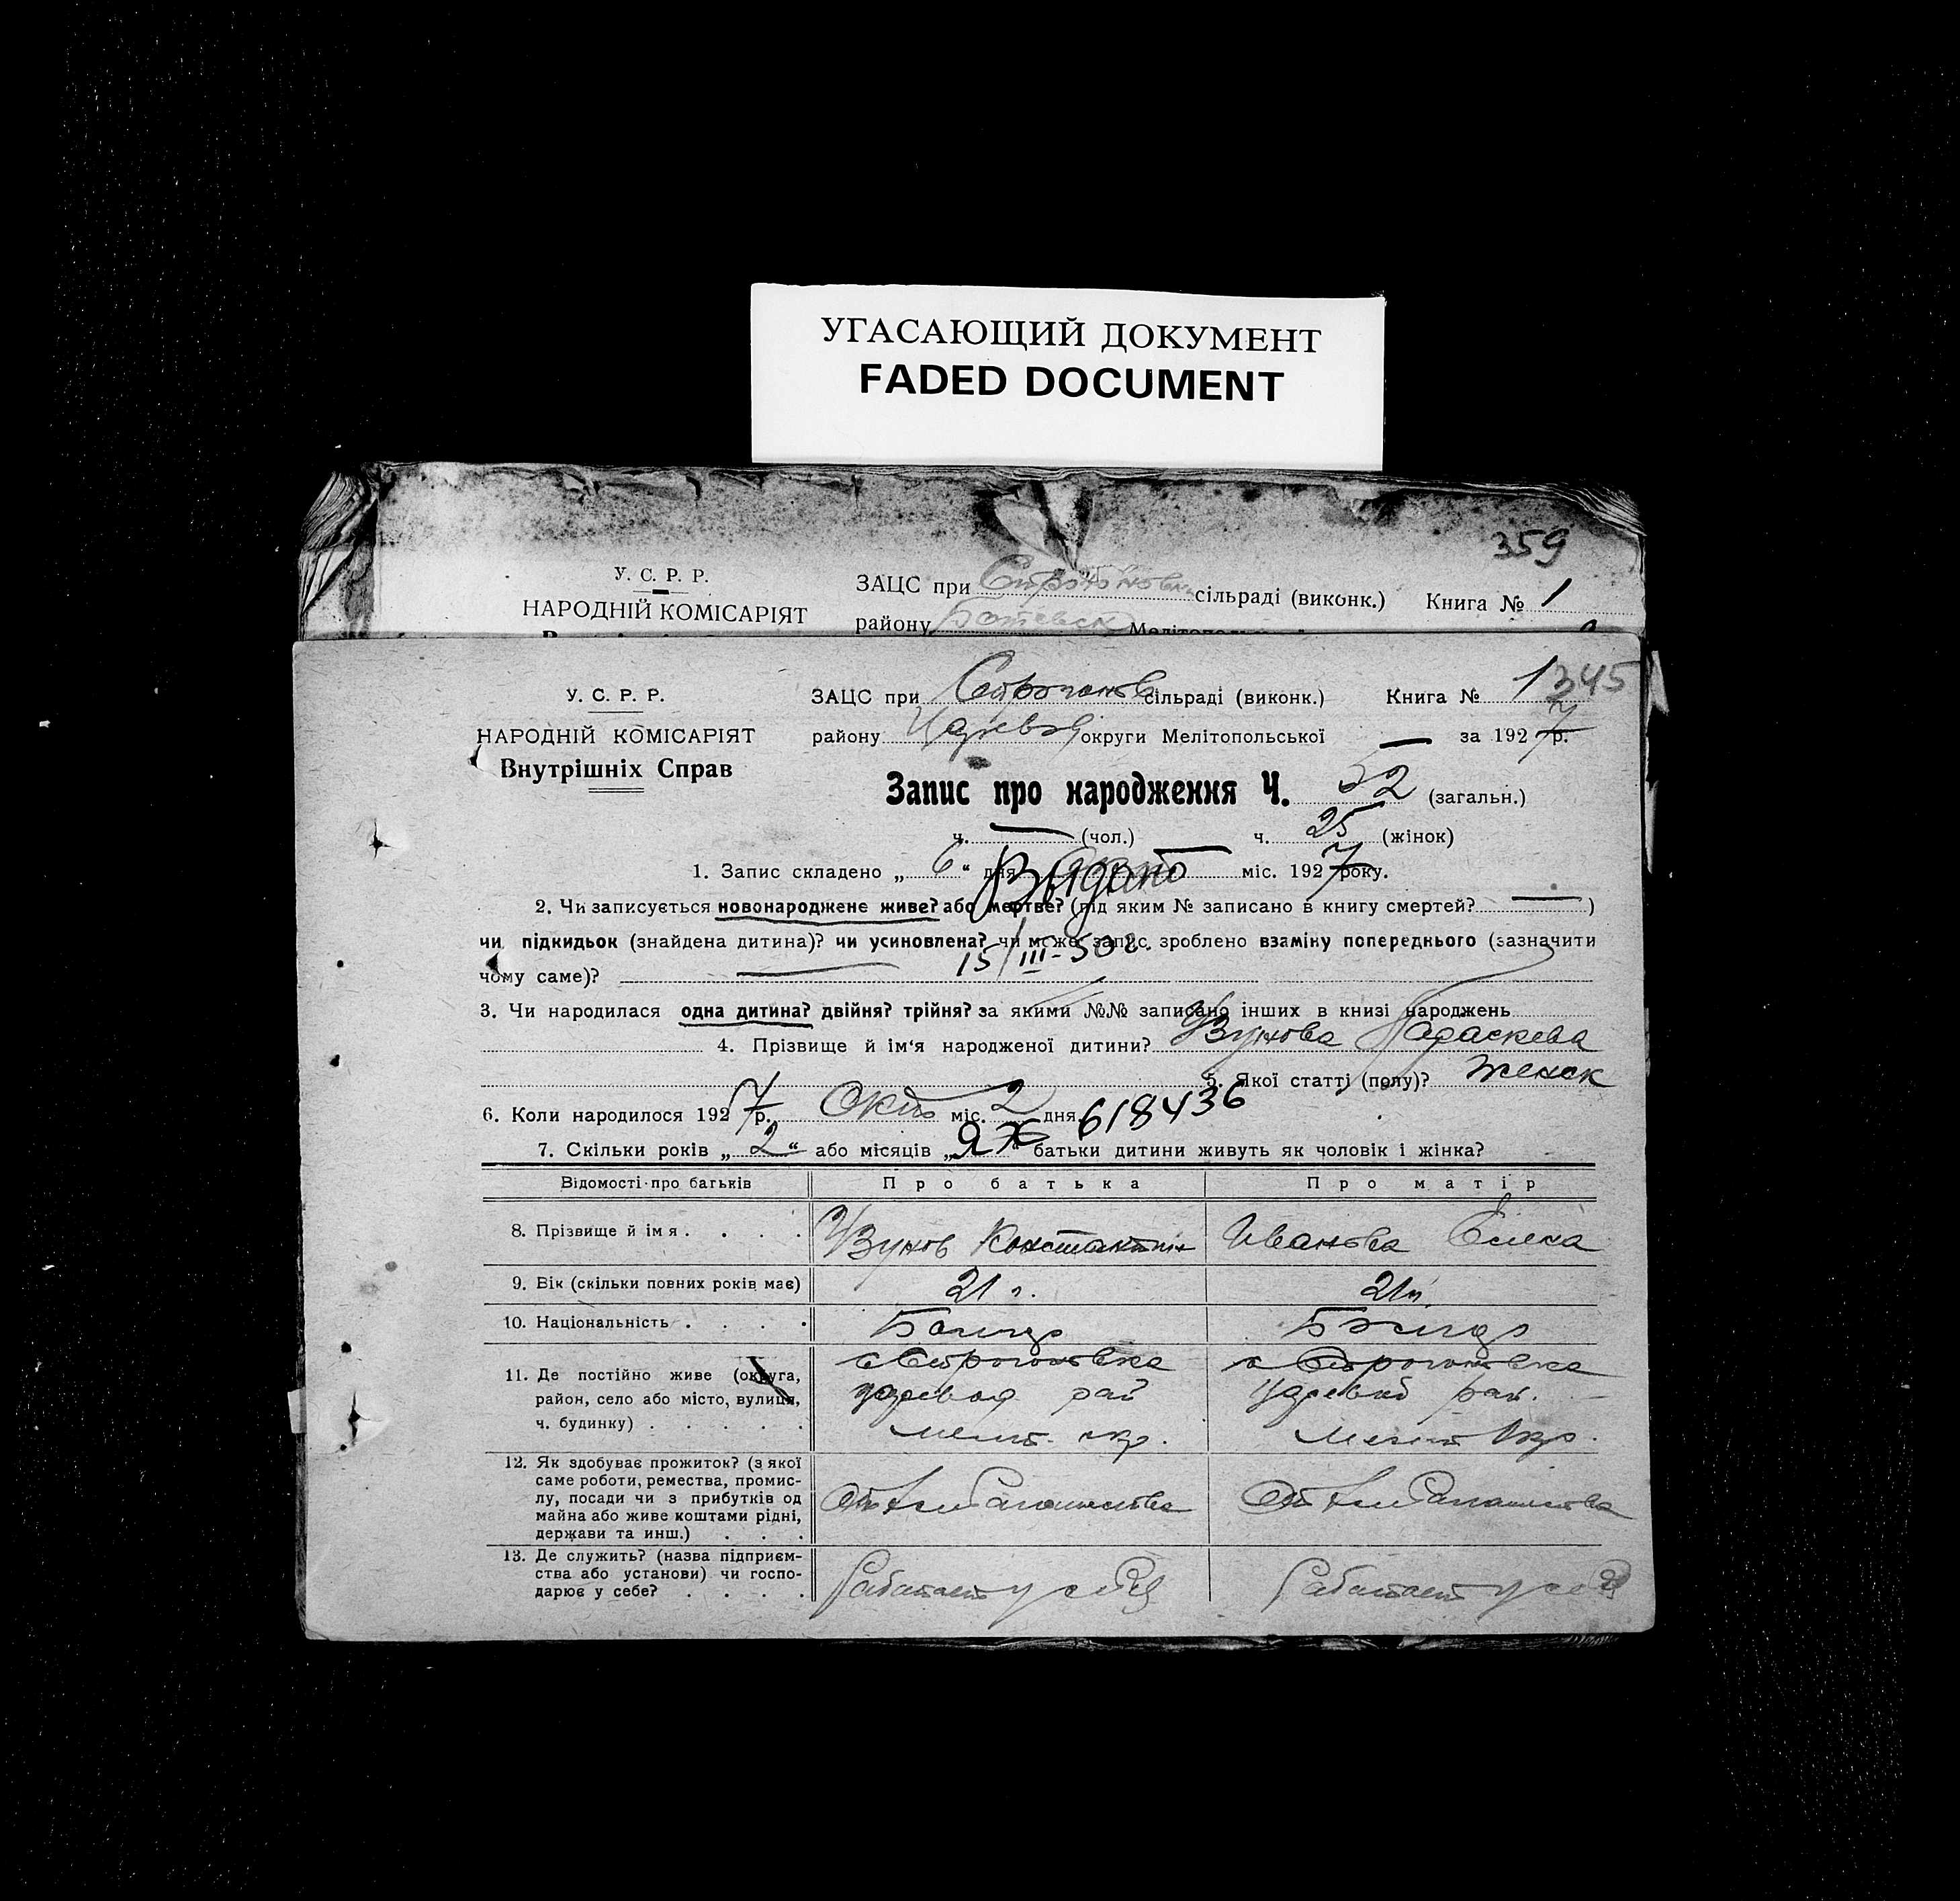 УГАСАЮЩИЙ ДОКУМЕНТ
FADED DOCUMENT
359
У. С. Р. Р.
НАРОДНІЙ КОМІСАРІЯТ
ЗАЦС при сільраді (виконк.) Книга № 1
району Ботевск
У. С. Р. Р.
НАРОДНІЙ КОМІСАРІЯТ
Внутрішніх Справ
ЗАЦС при Строганов сільраді (виконк.) Книга № 1 345
району Царевод округи Мелітопольської — за 1927 р.
Запис про народження Ч. 52 (загальн.)
ч. — (чол.) ч. 25 (жінок)
1. Запис складено „ 6 “ дня міс. 1927 року.
Выдано
2. Чи записується новонароджене живе? або мертве? (під яким № записано в книгу смертей? — )
чи підкидьок (знайдена дитина)? чи усиновлена? чи може запис зроблено взаміну попереднього (зазначити
15/III-50 г.
чому саме)? —
3. Чи народилася одна дитина? двійня? трійня? за якими №№ записано інших в книзі народжень
4. Прізвище й ім'я народженої дитини? Узунова Параскева
5. Якої статті (полу)? женск
6. Коли народилося 1927 р. Окт міс. 2 дня
ЯЖ 618436
7. Скільки років „ 2 “ або місяців „ “ батьки дитини живуть як чоловік і жінка?
Відомості про батьків Про батька Про матір
8. Прізвище й ім я . . . . Узунов Константин Иванова Елена
9. Вік (скільки повних років має) 21 г. 21 г.
10. Національність . . . . Болгар Болгар
11. Де постійно живе (округа, район, село або місто, вулиця, ч. будинку) . . . . .
с Строгоновка с Строгоновка
Царевод рай Царевод рай.
Мелит. окр. Мелит Окр.
12. Як здобуває прожиток? (з якої саме роботи, ремества, промислу, посади чи з прибутків од майна або живе коштами рідні, держави та инш.) . . .
От От
13. Де служить? (назва підприємства або установи) чи господарює у себе? . . . .
Работает у себя Работает у себя